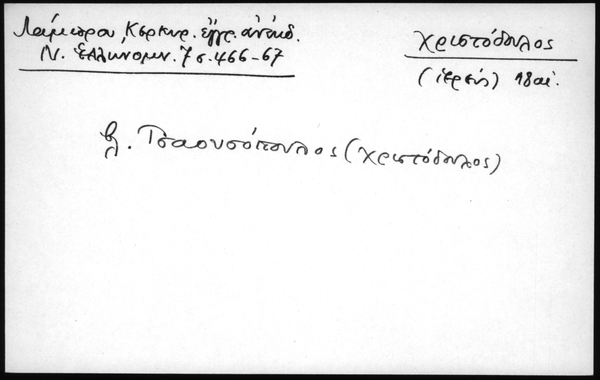 Λάμπρου, Κερκυρ. έγγρ. ανέκδ.
Ν. Ελληνομν. 7 σ. 466-67
Χριστόδουλος
(ιερεύς) 18 αι.
βλ. Τσαουσόπουλος (Χριστόδουλος)